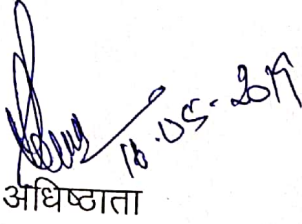 16.05.2019
अधिष्ठाता